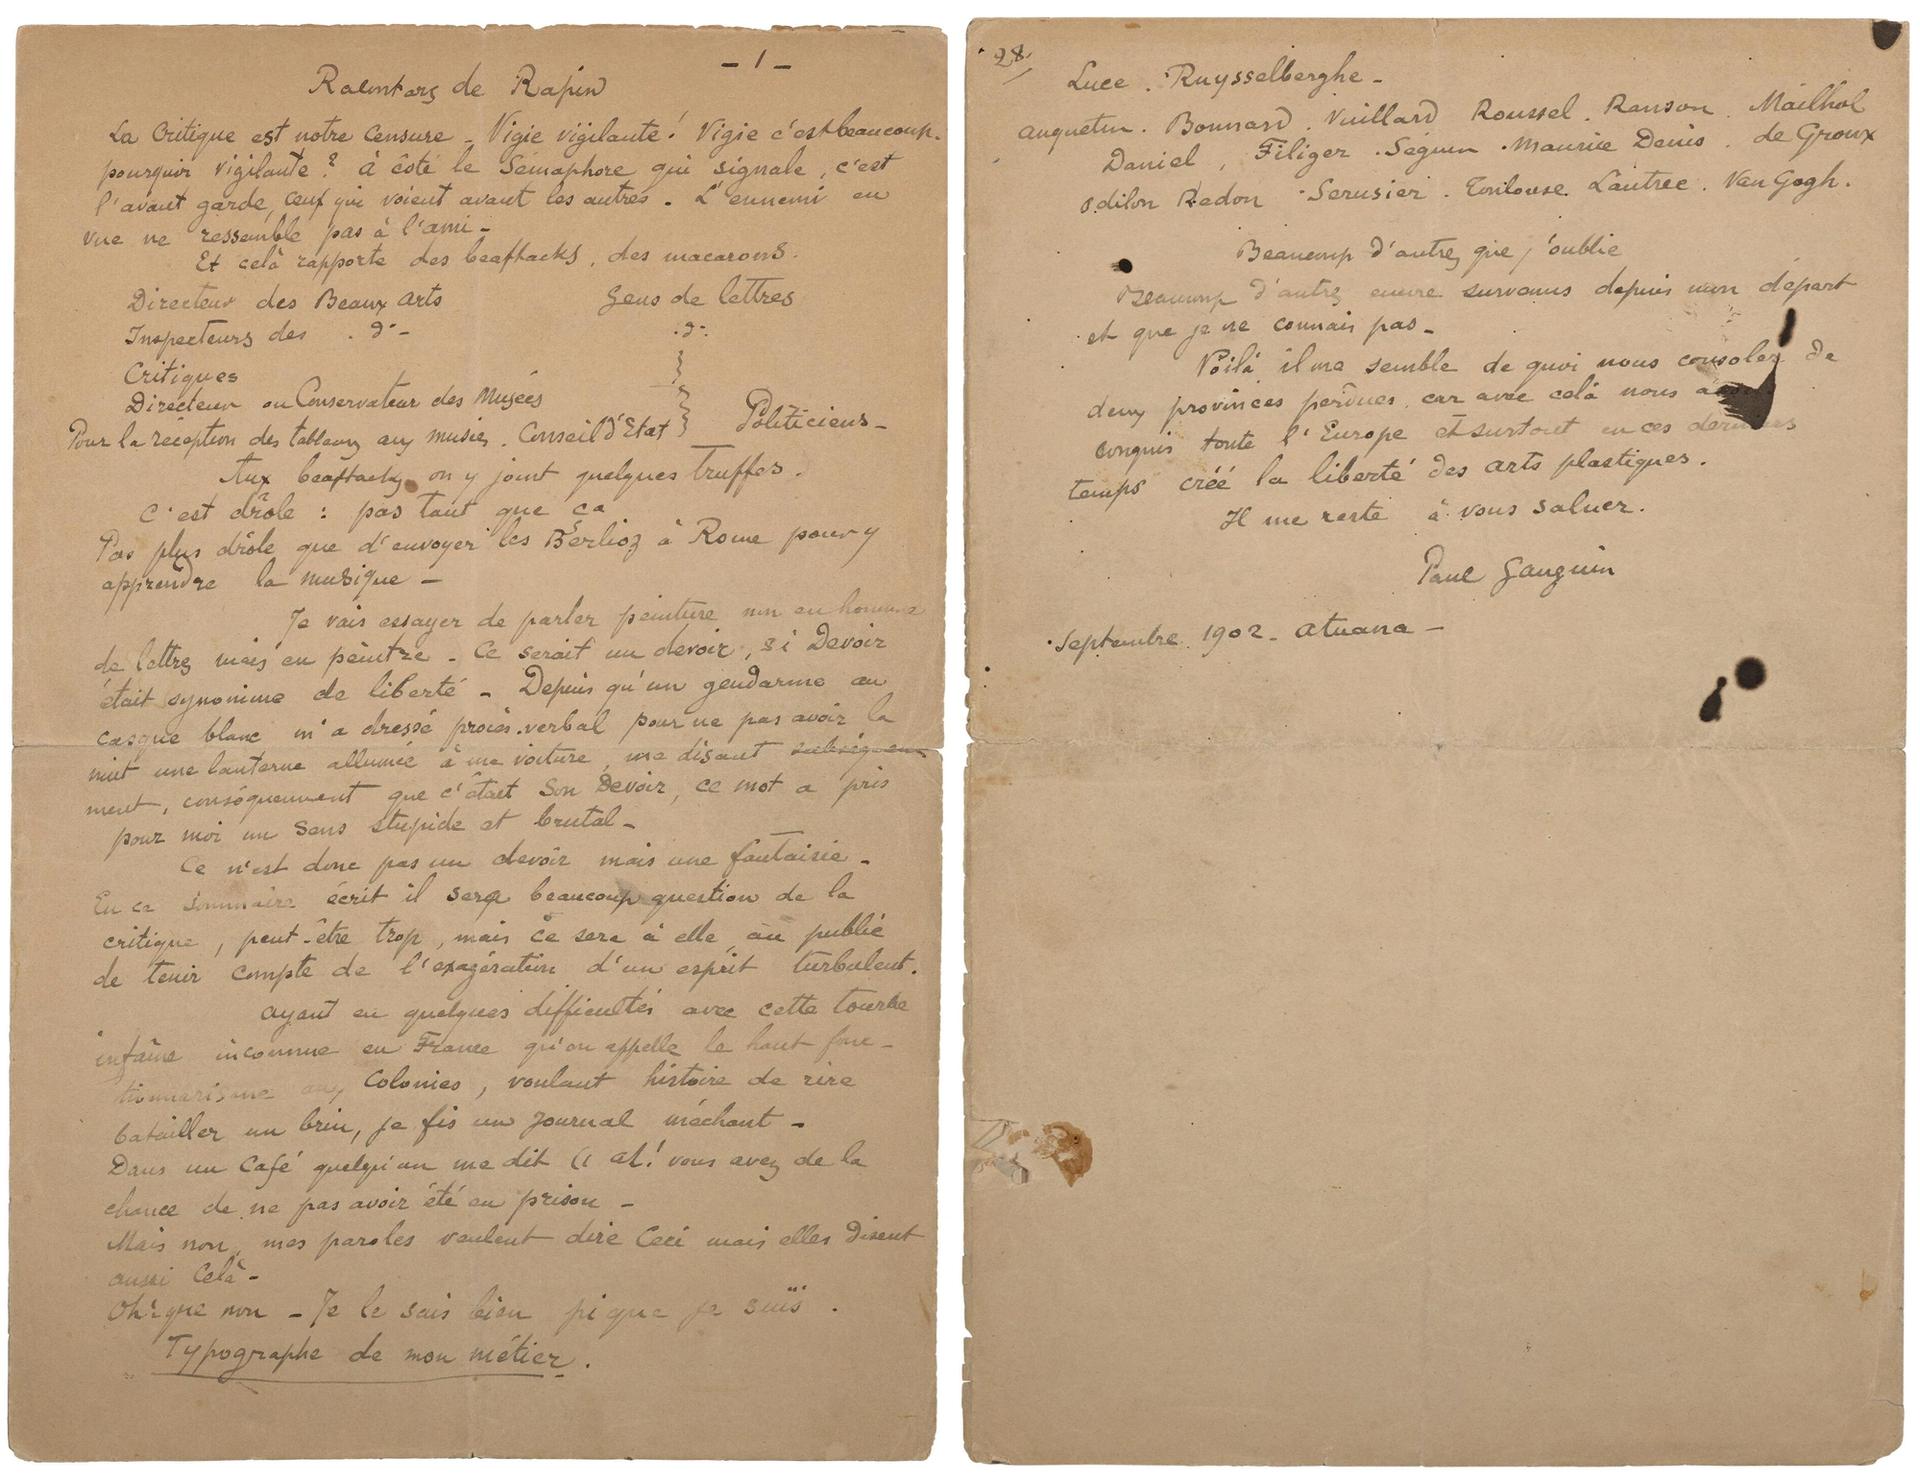 - 1 -
Racontars de Rapin
La Critique est notre Censure - Vigie vigilante! Vigie c'est beaucoup.
pourquoi vigilante? à côté le Sémaphore qui signale, c'est
l'avant garde, ceux qui voient avant les autres. L'ennemi en
vue ne ressemble pas à l'ami -
Et celà rapporte des beaftacks, des macarons.
Directeur des Beaux Arts Gens de lettres
Inspecteurs des . d°- . d°.
Critiques
Directeur ou Conservateur des Musées
Pour la réception des tableaux aux musées. Conseil d'Etat Politiciens -
Aux beaftacks on y joint quelques truffes.
C'est drôle: pas tant que ça
Pas plus drôle que d'envoyer les Berlioz à Rome pour y
apprendre la musique -
Je vais essayer de parler peinture non en homme
de lettres mais en peintre - Ce serait un devoir, si Devoir
était synonime de liberté - Depuis qu'un gendarme au
casque blanc m'a dressé procès-verbal pour ne pas avoir la
nuit une lanterne allumée à ma voiture, me disant subséquem
ment, conséquemment que c'était Son Devoir, ce mot a pris
pour moi un sens stupide et brutal -
Ce n'est donc pas un devoir mais une fantaisie -
En ce sommaire écrit il sera beaucoup question de la
critique, peut-être trop, mais ce sera à elle, au public
de tenir compte de l'exagération d'un esprit turbulent.
ayant eu quelques difficultés avec cette tourbe
infâme inconnue en France qu'on appelle le haut fonc-
tionnarisme aux Colonies, voulant histoire de rire
batailler un brin, je fis un Journal méchant -
Dans un Café quelqu'un me dit (( ah! vous avez de la
chance de ne pas avoir été en prison -
Mais non, mes paroles veulent dire Ceci mais elles disent
aussi Celà -
Oh! que non - Je le sais bien pique je suis .
Typographe de mon métier.
28
Luce . Ruysselberghe -
anquetin . Bonnard . Vuillard Roussel . Ranson . Mailhol
Daniel , Filiger . Séguin . Maurice Denis . de Groux
odilon Redon . Serusier . Toulouse Lautrec . Van Gogh .
Beaucoup d'autres que j'oublie
Beaucoup d'autres encore survenus depuis mon départ
et que je ne connais pas -
Voilà il me semble de quoi nous consoler de
deux provinces perdues, car avec celà nous avons
conquis toute l'Europe et surtout en ces derniers
temps créé la liberté des arts plastiques.
Il me reste à vous saluer.
Paul Gauguin
Septembre 1902 - Atuana -